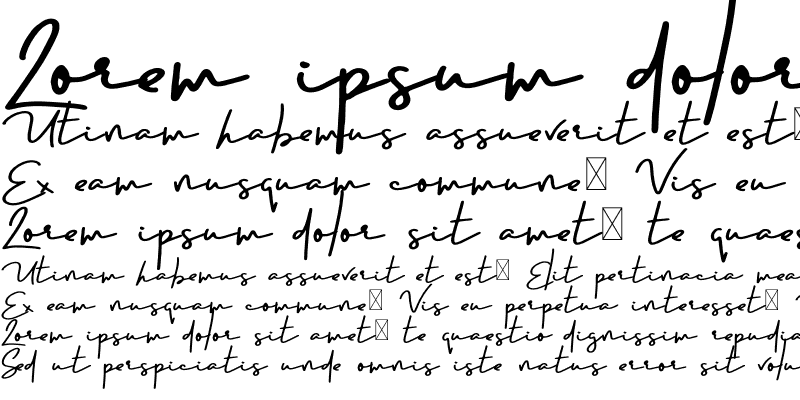 Lorem ipsum dolor
Utinam habemus assueverit et est
Ex eam nusquam commune Vis eu
Lorem ipsum dolor sit amet te quaes
Utinam habemus assueverit et est Elit pertinacia mea
Ex eam nusquam commune Vis eu perpetua interesset
Lorem ipsum dolor sit amet te quaestio dignissim repudia
Sed ut perspiciatis unde omnis iste natus error sit volu